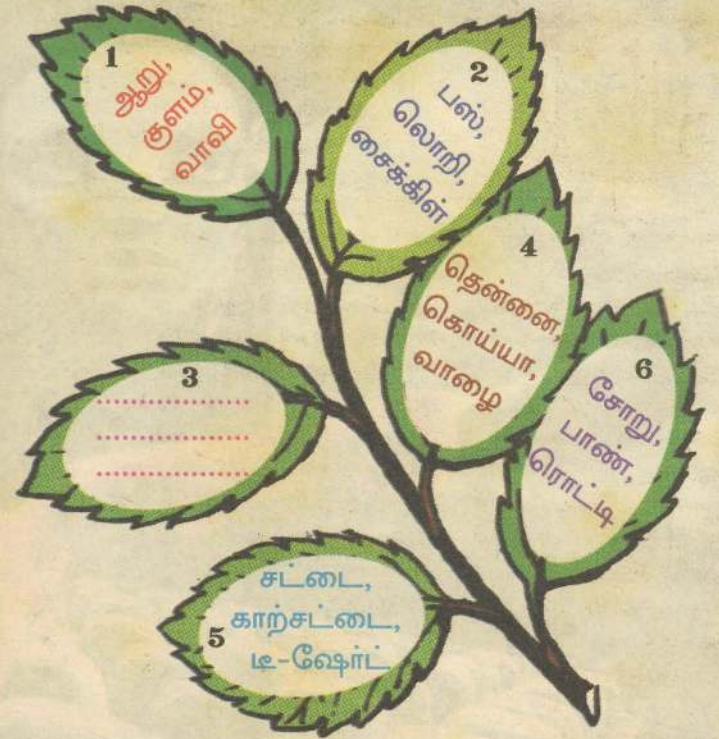 1
ஆறு,
குளம்,
வாவி
2
பஸ்,
லொறி,
சைக்கிள்
3
....................
....................
....................
4
தென்னை,
கொய்யா,
வாழை
5
சட்டை,
காற்சட்டை,
டீ-ஷேர்ட்
6
சோறு,
பாண்,
ரொட்டி